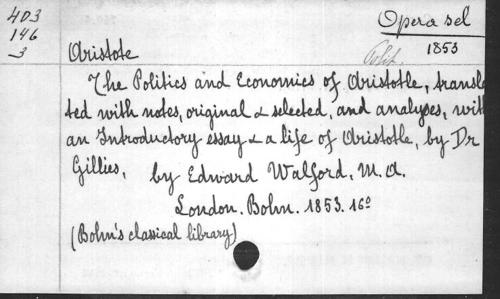 403
146
_3
Opera sel
1853
Polit.
Aristote
The Politics and Economics of Aristotle, transla
ted with notes, original & selected, and analyses, with
an Introductory essay & a life of Aristotle, by Dr
Gillies, by Edward Walford, M.A.
London. Bohn. 1853. 16o
(Bohn's classical library)